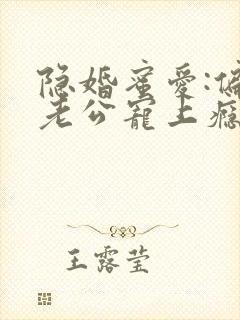 隐婚蜜爱:偏
老公宠上瘾
王露莹